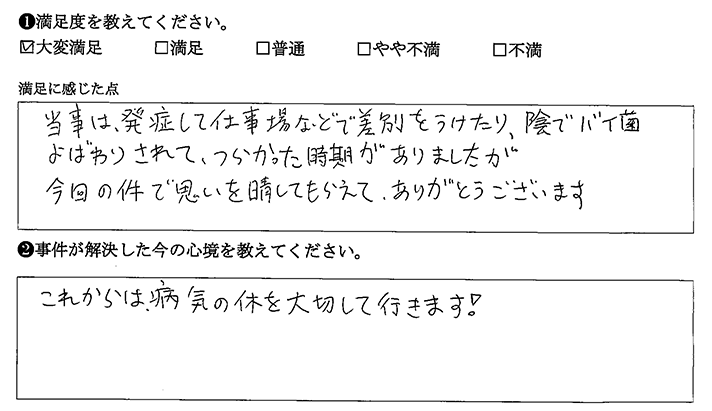 ❶満足度を教えてください。
☑大変満足 □満足 □普通 □やや不満 □不満
満足に感じた点
当事は、発症して仕事場などで差別をうけたり、陰でバイ菌
よばわりされて、つらかった時期がありましたが
今回の件で思いを晴してもらえて、ありがとうございます
❷事件が解決した今の心境を教えてください。
これからは、病気の休を大切して行きます!